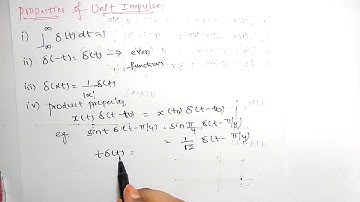 Properties of Unit Impulse
i) ∫_{-∞}^{∞} δ(t) dt = 1
ii) δ(-t) = δ(t) → even function
iii) δ(αt) = 1/|α| δ(t)
iv) product property
x(t) δ(t-t₀) = x(t₀) δ(t-t₀)
eg. sint δ(t-π/4) = sin π/4 δ(t-π/4)
= 1/√2 δ(t-π/4)
t δ(t) =